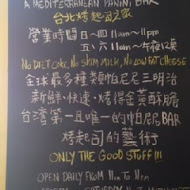 A MEDITERRANEAN PANINI BAR
台北烤起司之家
營業時間 日~四 11am~11pm
五、六 11am~午夜12點
NO DIET COKE, NO SKIM MILK, NO LOW FAT CHEESE
全球最多種類帕尼尼三明治
新鮮、快速、烤得金黃酥脆
台灣第一且唯一的帕尼尼BAR
烤起司的藝術
ONLY THE GOOD STUFF!!!
OPEN DAILY FROM 11am To 11pm